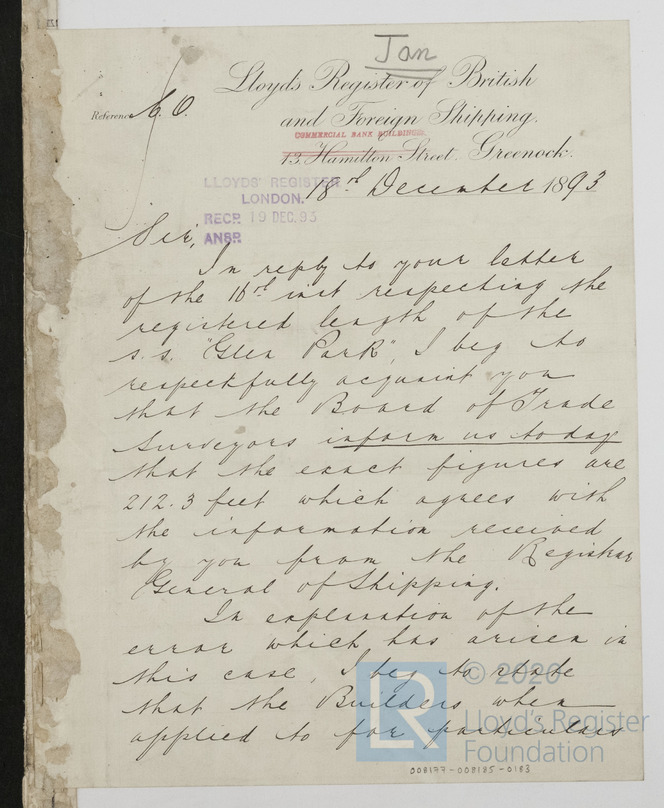 Jan
Lloyd's Register of British
and Foreign Shipping.
COMMERCIAL BANK BUILDINGS.
13, Hamilton Street. Greenock.
Reference C.O.
18th December 1893
LLOYDS' REGISTER
LONDON.
RECD. 19 DEC. 93
ANSD.
Sir,
In reply to your letter
of the 16th inst respecting the
registered length of the
s.s. "Glen Park", I beg to
respectfully acquaint you
that the Board of Trade
Surveyors inform us today
that the exact figures are
212.3 feet which agrees with
the information received
by you from the Registrar
General of Shipping.
In explanation of the
error which has arisen in
this case, I beg to state
that the Builders when
applied to for particulars
LR
© 2020
Lloyd's Register
Foundation
008177-008185-0183